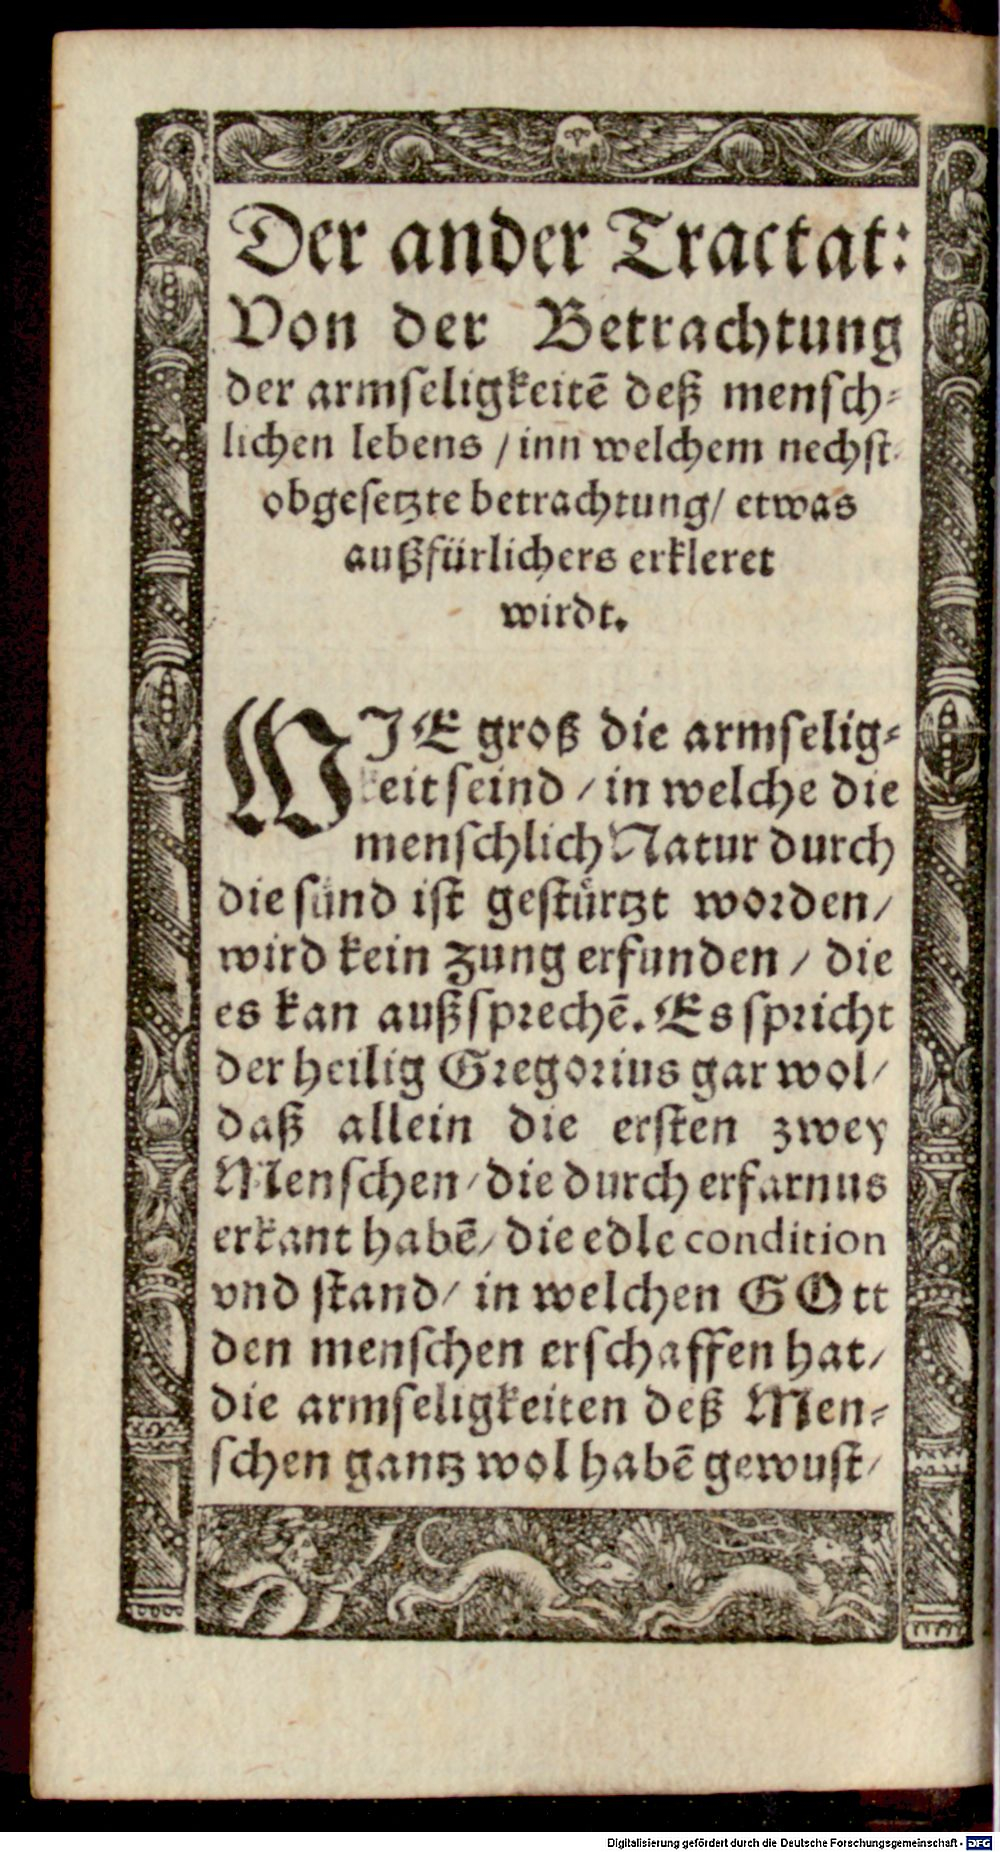 Der ander Tractat:
Von der Betrachtung
der armseligkeitē deß mensch-
lichen lebens / inn welchem nechst-
obgesetzte betrachtung / etwas
außfürlichers erkleret
wirdt.
WIE groß die armselig-
keit seind / in welche die
menschlich Natur durch
die sünd ist gestürtzt worden /
wird kein zung erfunden / die
es kan außsprechē. Es spricht
der heilig Gregorius gar wol /
daß allein die ersten zwey
Menschen / die durch erfarnus
erkant habē / die edle condition
vnd stand / in welchen GOtt
den menschen erschaffen hat /
die armseligkeiten deß Men-
schen gantz wol habē gewust /
Digitalisierung gefördert durch die Deutsche Forschungsgemeinschaft - DFG